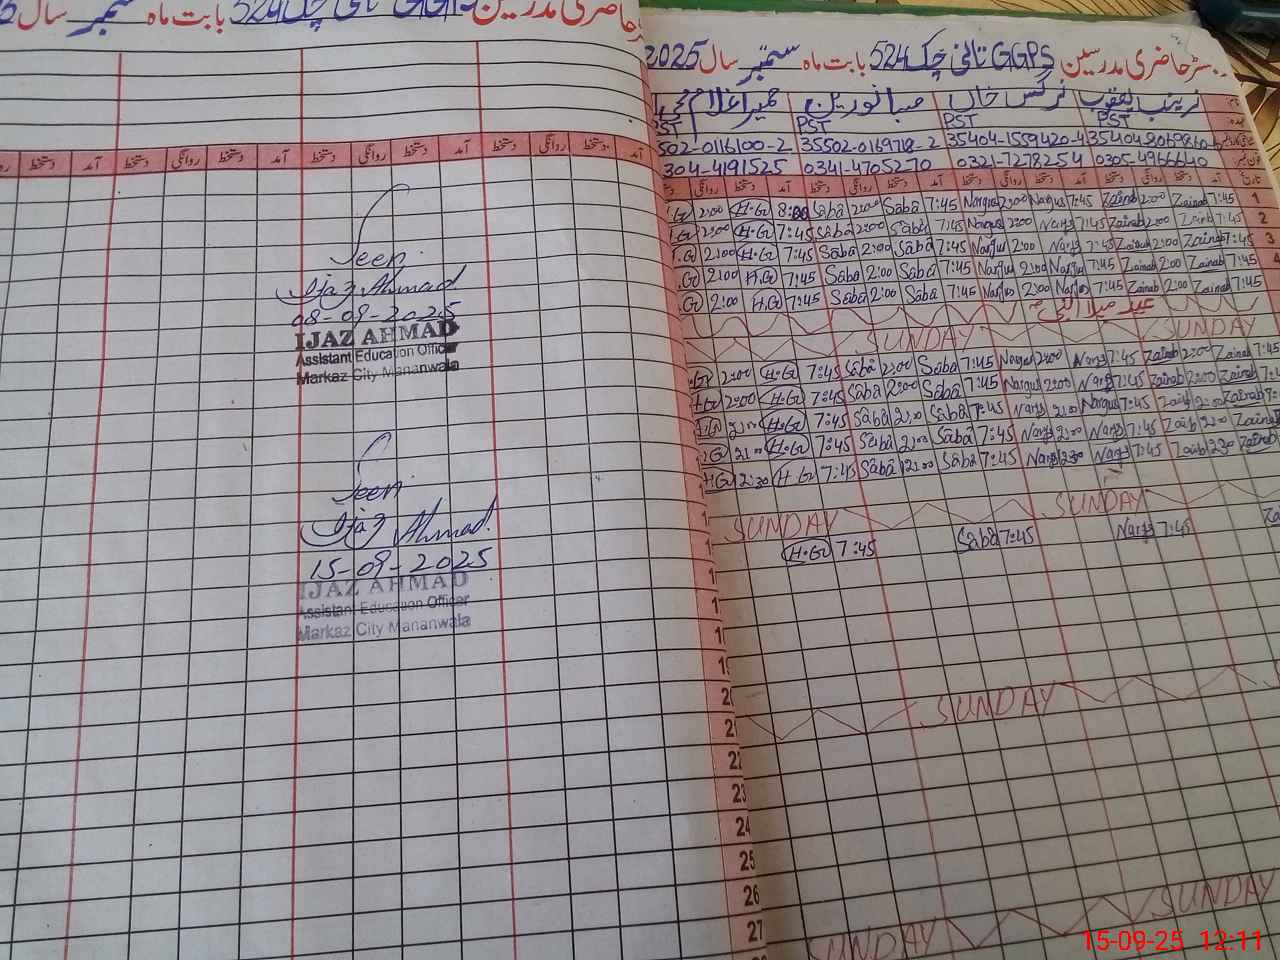 رجسٹر حاضری مدرسین GGPS تانی چک 524 بابت ماہ ستمبر سال 2025
زینب یعقوب نرگس خان صبا نورین حمیرا غلام
PST PST PST PST
35404-1559420-4 35502-0169718-2 502-0116100-2
0305-4966640 0321-7278254 0341-4705270 304-4191525
آمد دستخط روانگی دستخط آمد دستخط روانگی دستخط آمد دستخط روانگی دستخط آمد دستخط روانگی
1 7:45 Zainab 2:00 Zainab 7:45 Nargus 2:00 Nargus 7:45 Saba 2:00 Saba 8:00 H.G 2:00
2 7:45 Zainab 2:00 Zainab 7:45 Nargus 2:00 Nargus 7:45 Saba 2:00 Saba 7:45 H.G 2:00
3 7:45 Zainab 2:00 Zainab 7:45 Nargus 2:00 Nargus 7:45 Saba 2:00 Saba 7:45 H.G 2:00
4 7:45 Zainab 2:00 Zainab 7:45 Nargus 2:00 Nargus 7:45 Saba 2:00 Saba 7:45 H.G 2:00
7:45 Zainab 2:00 Zainab 7:45 Nargus 2:00 Nargus 7:45 Saba 2:00 Saba 7:45 H.G 2:00
عید میلاد النبی
SUNDAY SUNDAY
7:45 Zainab 2:00 Zainab 7:45 Nargus 2:00 Nargus 7:45 Saba 2:00 Saba 7:45 H.G 2:00
Zainab 2:00 Zainab 7:45 Nargus 2:00 Nargus 7:45 Saba 2:00 Saba 7:45 H.G 2:00
Zainab 2:00 Zainab 7:45 Nargus 2:00 Nargus 7:45 Saba 2:00 Saba 7:45 H.G 2:00
Zainab 2:00 Zainab 7:45 Nargus 2:00 Nargus 7:45 Saba 2:00 Saba 7:45 H.G 2:00
Zainab 2:30 Zainab 7:45 Nargus 2:30 Nargus 7:45 Saba 12:00 Saba 7:45 H.G 2:30
SUNDAY SUNDAY
7:45 Nargus 7:45 Saba 7:45 H.G
20
SUNDAY
21
22
23
24
25
26
27
SUNDAY SUNDAY
15-09-25 12:11
524 بابت ماہ ستمبر سال
آمد دستخط روانگی دستخط آمد دستخط روانگی دستخط آمد دستخط روانگی دستخط آمد
Seen
Ijaz Ahmad
08-09-2025
IJAZ AHMAD
Assistant Education Officer
Markaz City Mananwala
Seen
Ijaz Ahmad
15-09-2025
IJAZ AHMAD
Assistant Education Officer
Markaz City Mananwala